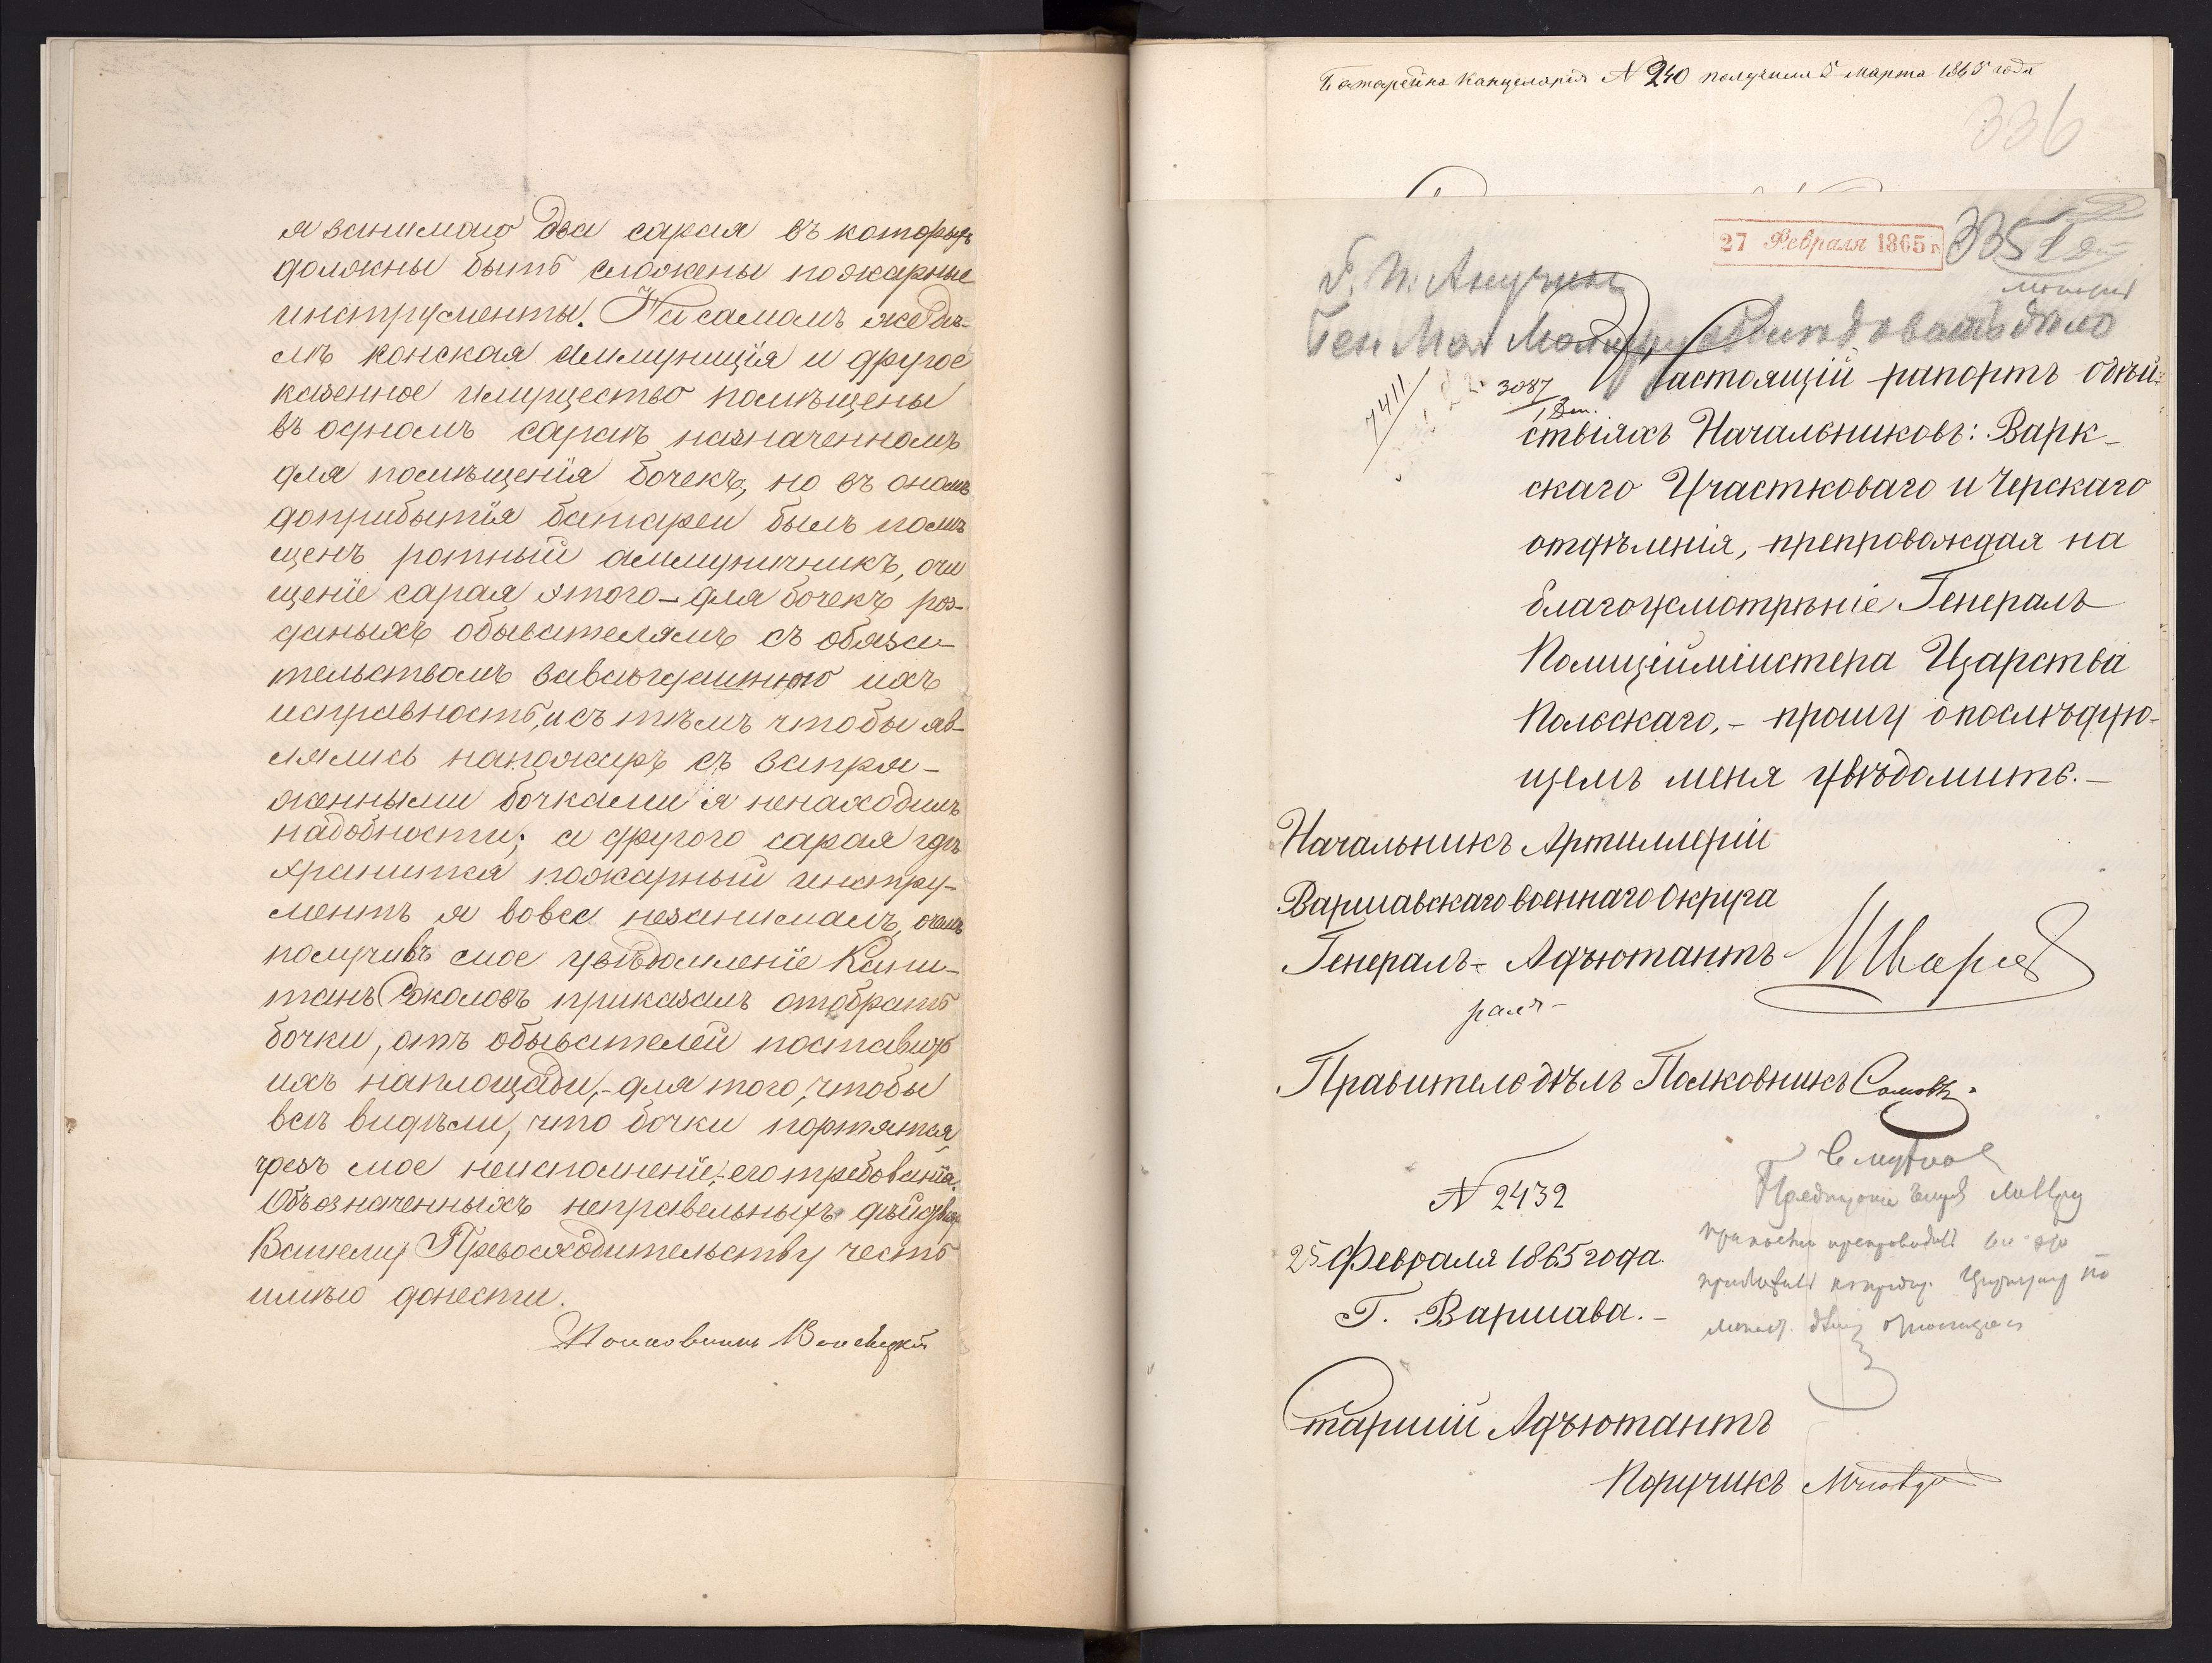 я занимаю два сарая въ которыхъ
должны быть сложены пожарные
инструменты. На самомъ же дѣ-
лѣ конская аммуниція и другое
казенное имущество помѣщены
въ одномъ сараѣ назначенномъ
для помѣщенія бочекъ, но въ ономъ
доприбытія батареи былъ помѣ
щенъ ротный аммуничникъ, очи
щеніе сарая этого – для бочекъ роз-
даныхъ обывателямъ съ обяза-
тельствомъ за всегдашнюю ихъ
исправность, и съ тѣмъ чтобы яв-
лялись напожаръ съ запря-
женными бочками я ненаходилъ
надобности; а другого сарая гдѣ
хранится пожарный инстру-
ментъ я вовсе незанималъ, очемъ
получивъ мое увѣдомленіе Капи-
танъ Соколовъ приказалъ отобрать
бочки, отъ обывателей поставить
ихъ наплощади, – для того, чтобы
всѣ видѣли, что бочки портятся
чрезъ мое неисполненіе, – его требованія.
Объозначенныхъ неправельныхъ дѣйств
Вашему Превосходительству честь
имѣю донести.
Полковникъ
Батарейна Канцелярія N 240 получила 5 марта 1865 года
336
27 Февраля 1865 г.
335
Ген. Маі
дѣло
7411
3087
1 Дѣл.
Настоящій рапортъ одѣй-
ствіяхъ Начальниковъ: Варк-
скаго Участковаго и Черскаго
отдѣленія, препровождая на
благоусмотрѣніе Генералъ
Полиціймѣистера Царства
Польскаго, – прошу опослѣдую-
щемъ меня увѣдомить. –
Начальникъ Артиллеріи
Варшавскаго военнаго Округа
Генералъ-Адъютантъ
Правитель дѣлъ Полковникъ
N 2432
25 Февраля 1865 года.
Г. Варшава. –
Старшій Адъютантъ
Поручикъ